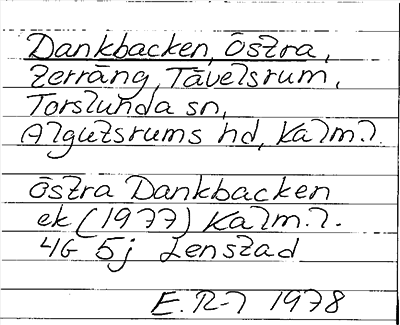 Dankbacken, Östra,
terräng, Tävelsrum,
Torslunda sn,
Algutsrums hd, Kalm.l.
Östra Dankbacken
ek (1977) Kalm.l.
4G 5j Lenstad
E.R-l 1978